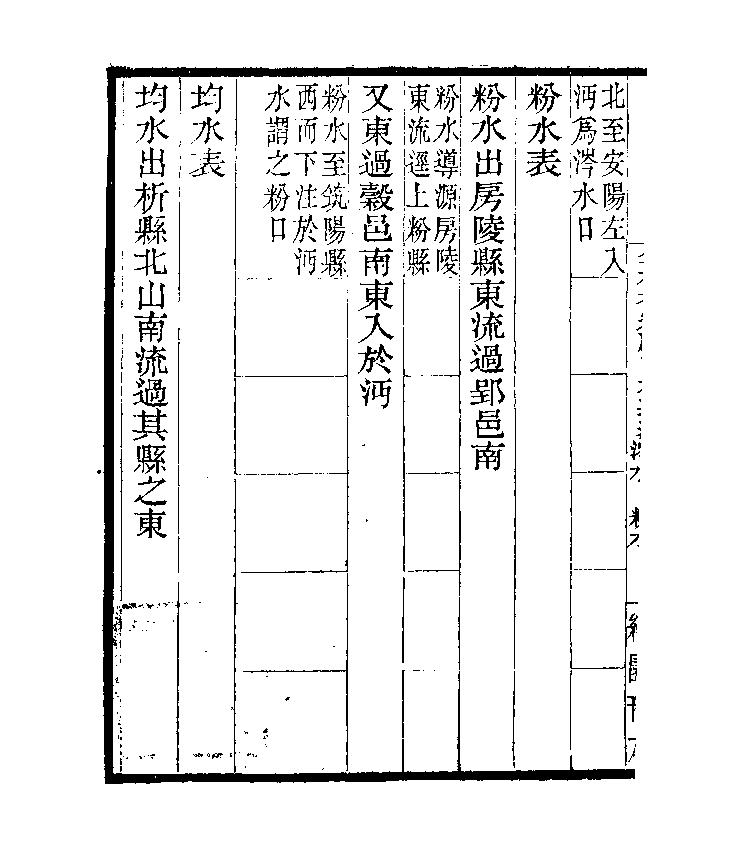 北至安陽左入
沔爲涔水口
粉水表
粉水出房陵縣東流過郢邑南
粉水導源房陵
東流逕上粉縣
又東過穀邑南東入於沔
粉水至筑陽縣
西而下注於沔
水謂之粉口
均水表
均水出析縣北山南流過其縣之東